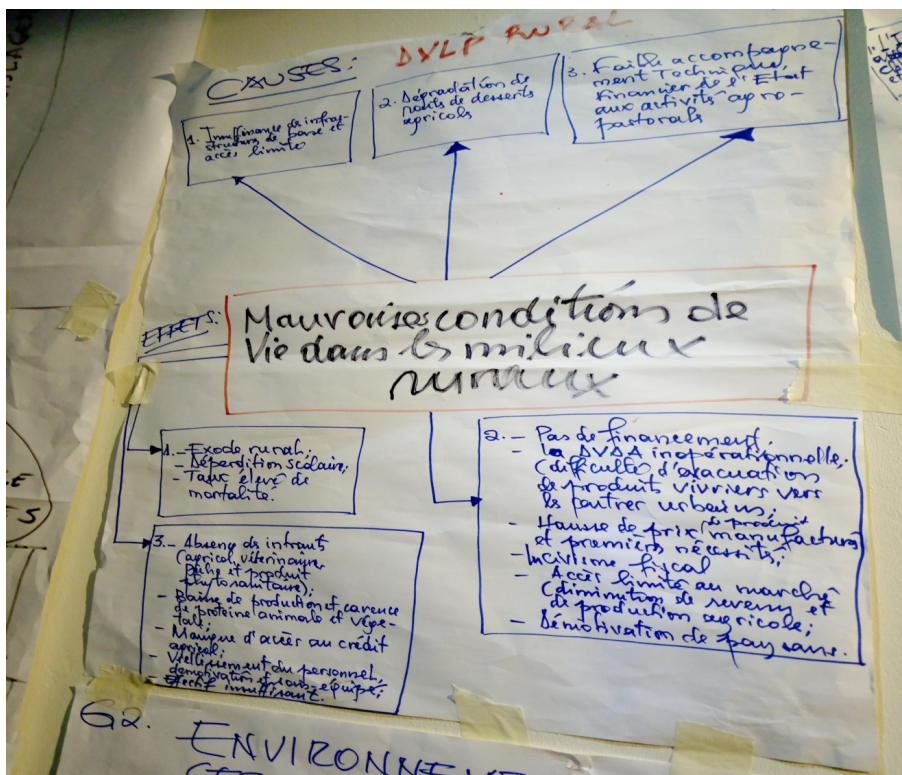 DVLP RURAL
CAUSES:
1. Insuffisance des infra-
structures de base et
accès limité
2. Dégradation de
routes de desserts
agricols
3. Faible accompagne-
ment Technique,
Financier de l'Etat
aux activités agro-
pastorals
EFFETS:
Mauvaises conditions de
Vie dans les milieux
ruraux
1. - Exode rural;
- Déperdition scolaire;
- Taux élevé de
mortalité.
2. - Pas de financement;
- la DVDA inopérationnelle;
(difficulté d'évacuation
de produits vivriers vers
les centres urbains;
- Hausse de prix de produits manufacturés
et premiers nécessité;
- Incivisme fiscal
- Accès limité au marché
(diminution de revenu et
de production agricole;
- Démotivation de paysans.
3. - Absence des intrants
(agricol, vétérinaire,
pêche et produit
phytosanitaire);
- Baisse de production et carence
de protéine animale et végé-
tale;
- Manque d'accès au crédit
agricol;
- Vieillissement du personnel,
démotivation et sous-équipé;
- Effectif insuffisant.
G2. ENVIRONNEME